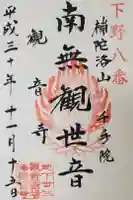 下野八番
補陀洛山
千手院
南無観世音
観音寺
平成三十年十一月十五日